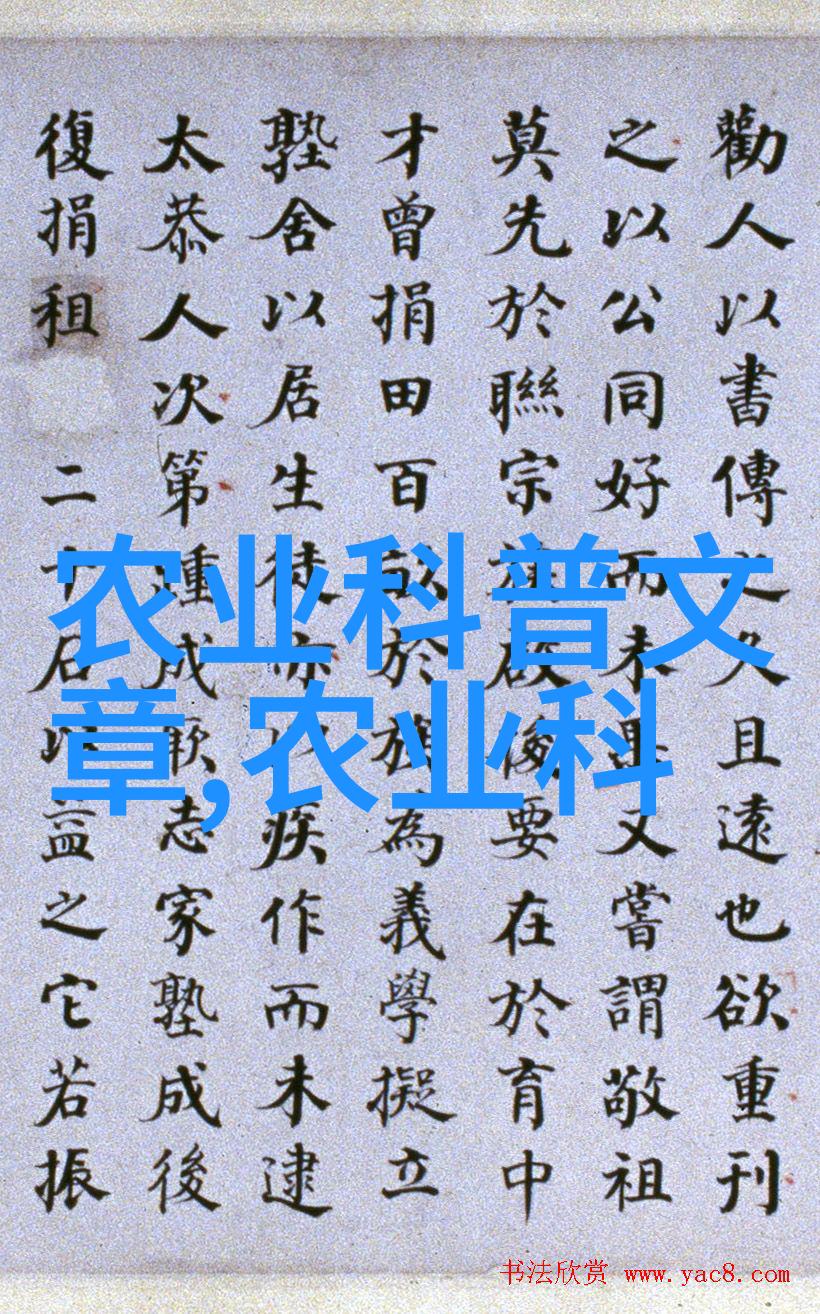 勸人以書傳之久且遠也欲重刊
之以公同好而未果又嘗謂敬祖
莫先於聯宗族啟後要在於育中
才曾捐田百畝於族為義學擬立
塾舍以居生徒亦以疾作而未逮
太恭人次第踵成厥志家塾成後
復捐租二十石以益之它若振
农业科普文
章,农业科
书法欣赏 www.yac8.com